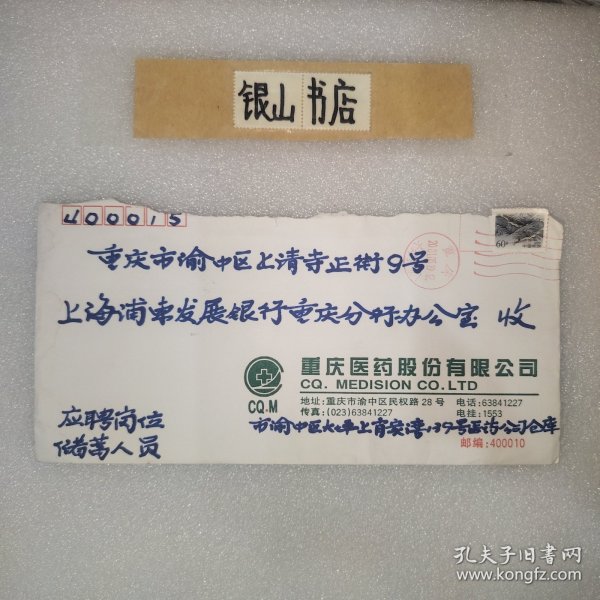 银山书店
400015
60
重庆市渝中区上清寺正街9号
上海浦东发展银行重庆分行办公室 收
重庆医药股份有限公司
CQ. MEDISION CO.LTD
CQ.M
地址:重庆市渝中区民权路28号 电话:63841227
传真:(023)63841227 电挂:1553
应聘岗位
储蓄人员
市渝中区大坪上肖家湾139号医药公司仓库
邮编:400010
孔夫子旧书网
www.kongfz.com